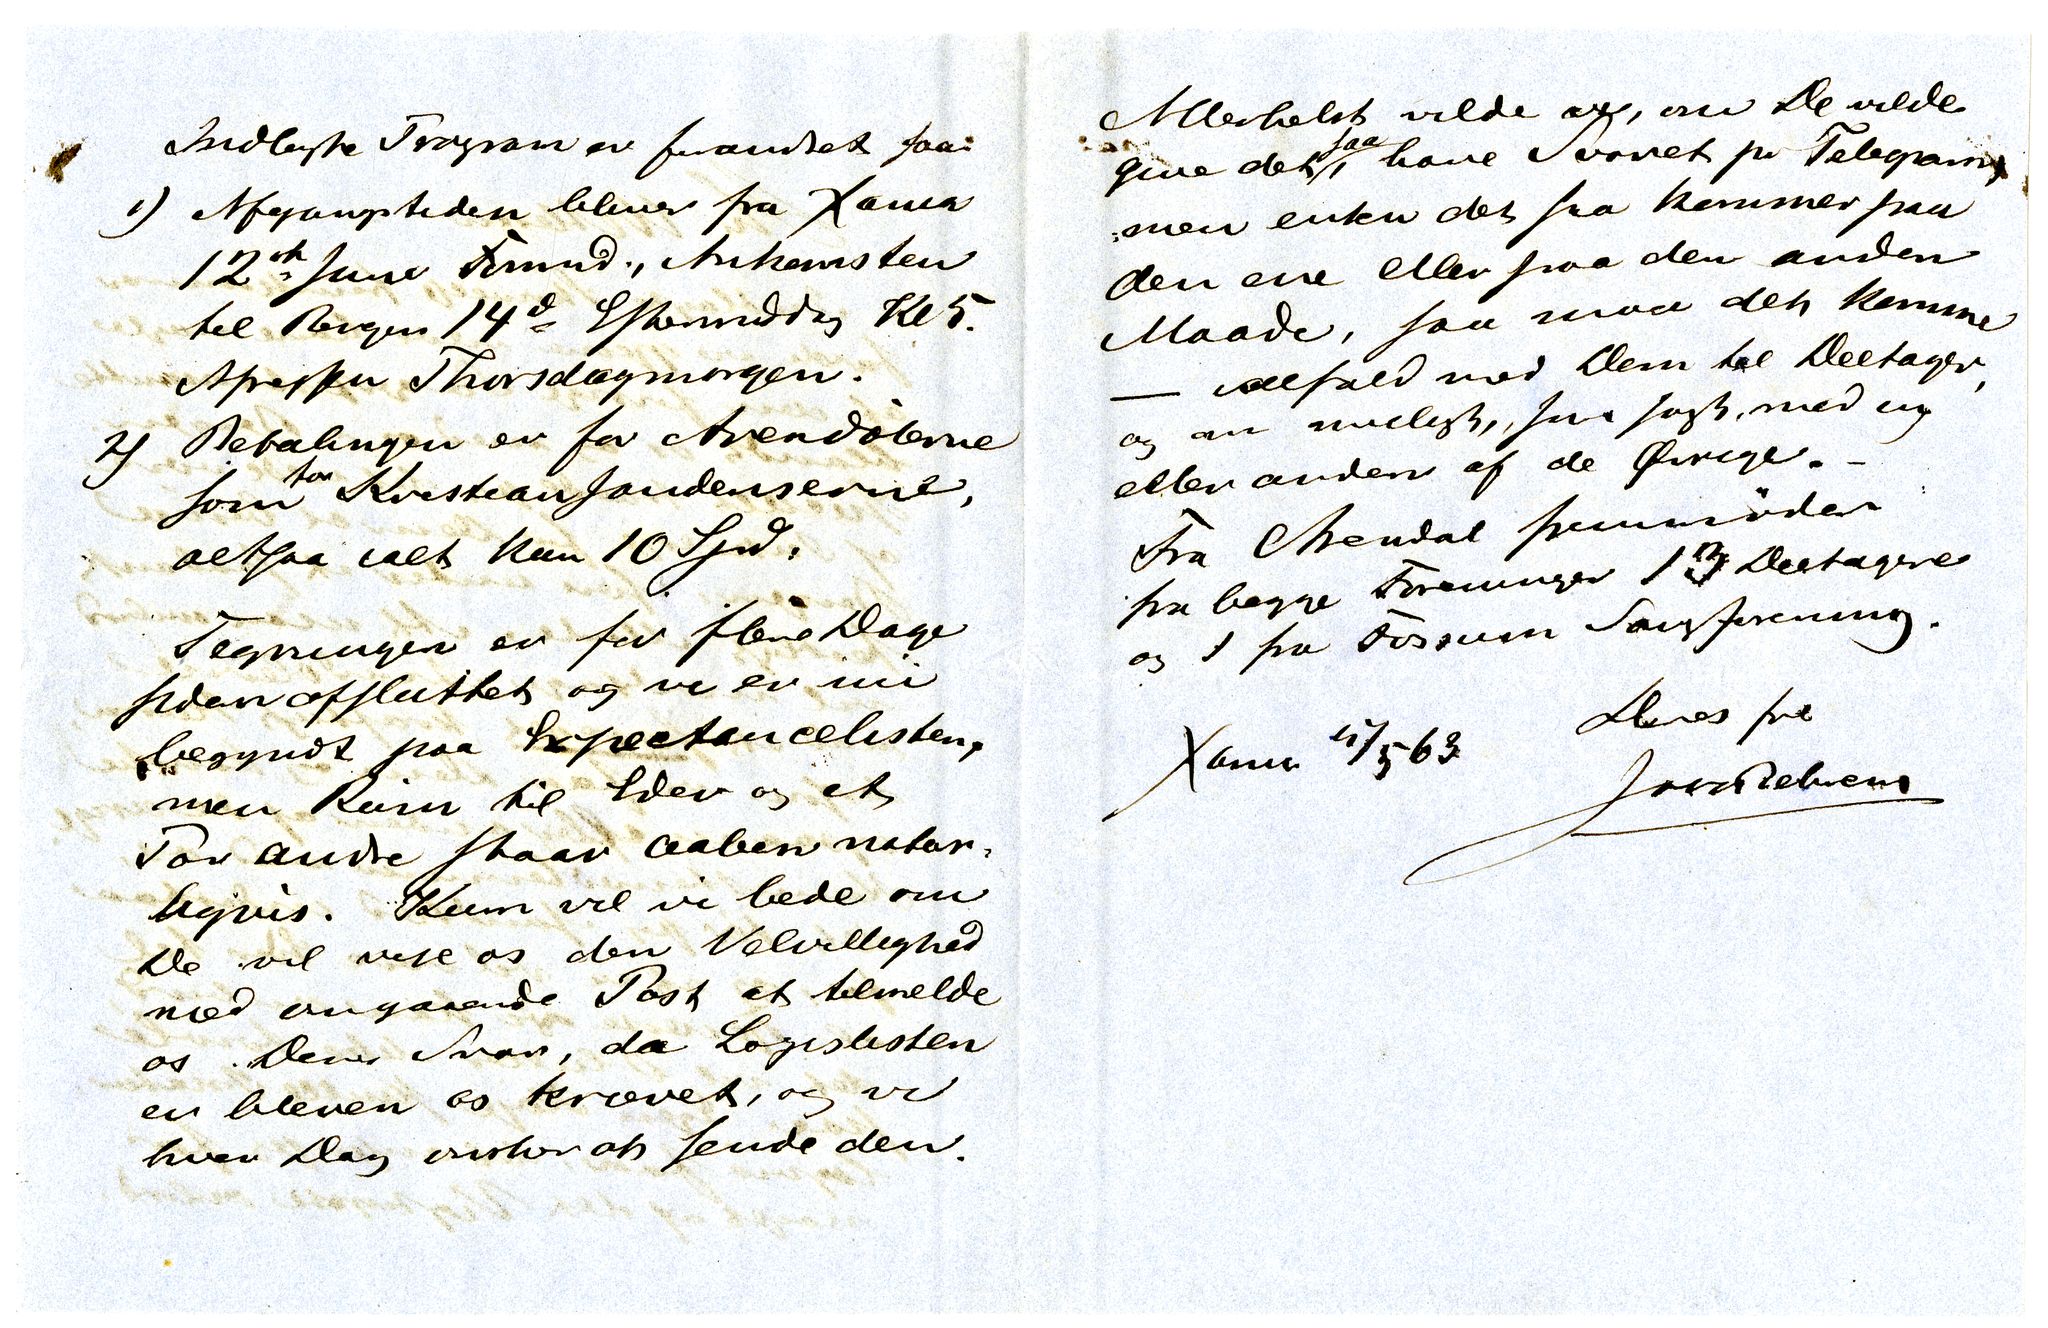 Indlagte Program er forandret saa:
1) Afgangstiden bliver fra Xania
12te Juni Formd., Ankomsten
til Bergen 14d Eftermiddag Kl 5.
Afreisen Thorsdagmorgen.
2) Betalingen er for Arendølerne
som for Kristianssandenserne,
altsaa ialt kun 10 Spd.
Tegningen er for flere Dage
siden afsluttet og vi er nu
begyndt paa Expectancelisten,
men Rum til Eder og et
Par andre staar aaben natur-
ligvis. Kun vil vi bede om
De vil vise os den Velvillighed
med omgaaende Post at tilmelde
os Deres Svar, da Logislisten
er bleven os krævet, og vi
hver Dag ønsker at sende den.
Allerhelst vilde vi, om De vilde
give det, saa have Svaret pr Telegram,
men enten det saa kommer paa
den ene eller paa den anden
Maade, saa maa det komme
— ialfald med Dem til Deltager,
og om muligt, som sagt, med en
eller anden af de Øvrige. –
Fra Arendal fremmøder
fra begge Foreninger 13 Deltagere
og 1 fra Fossum Sangforening.
Xania /5 63
Deres
Behrens